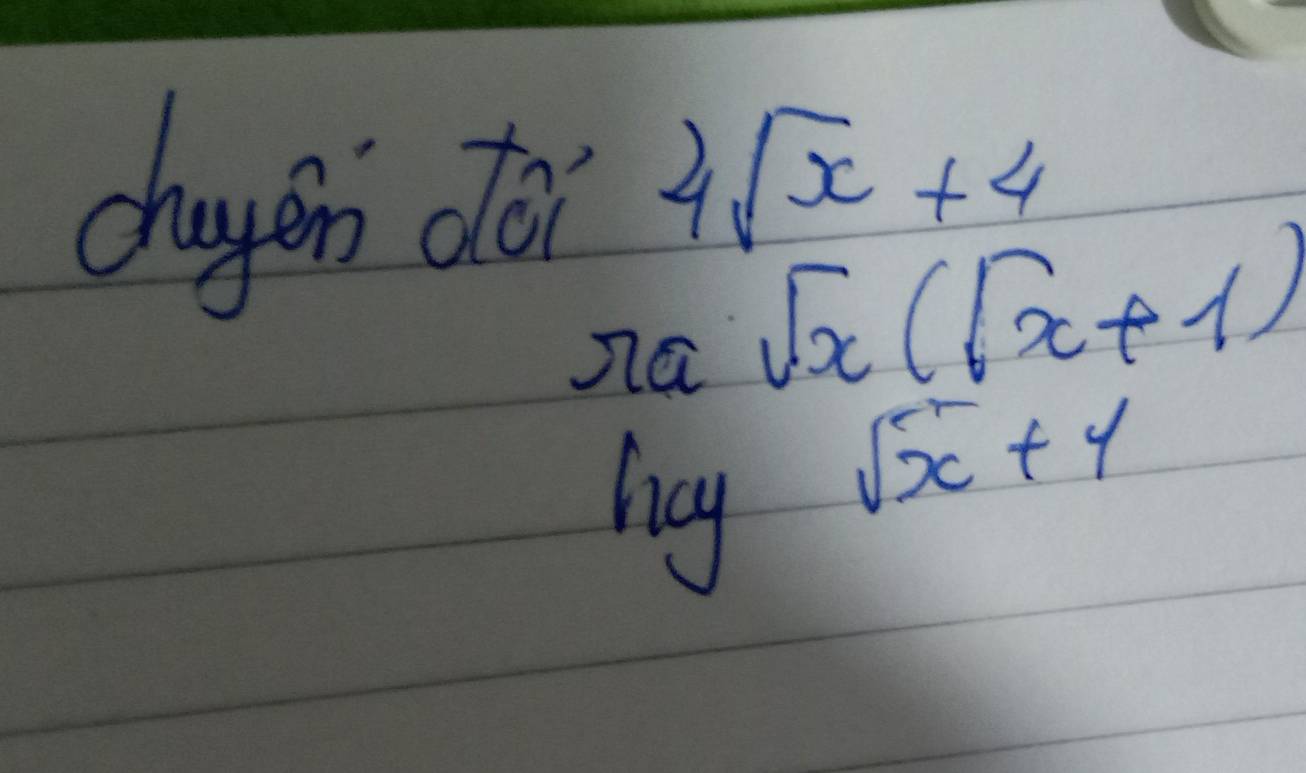 chuyển đổi 4√x + 4
ra √x (√x + 1)
hay √x + 1